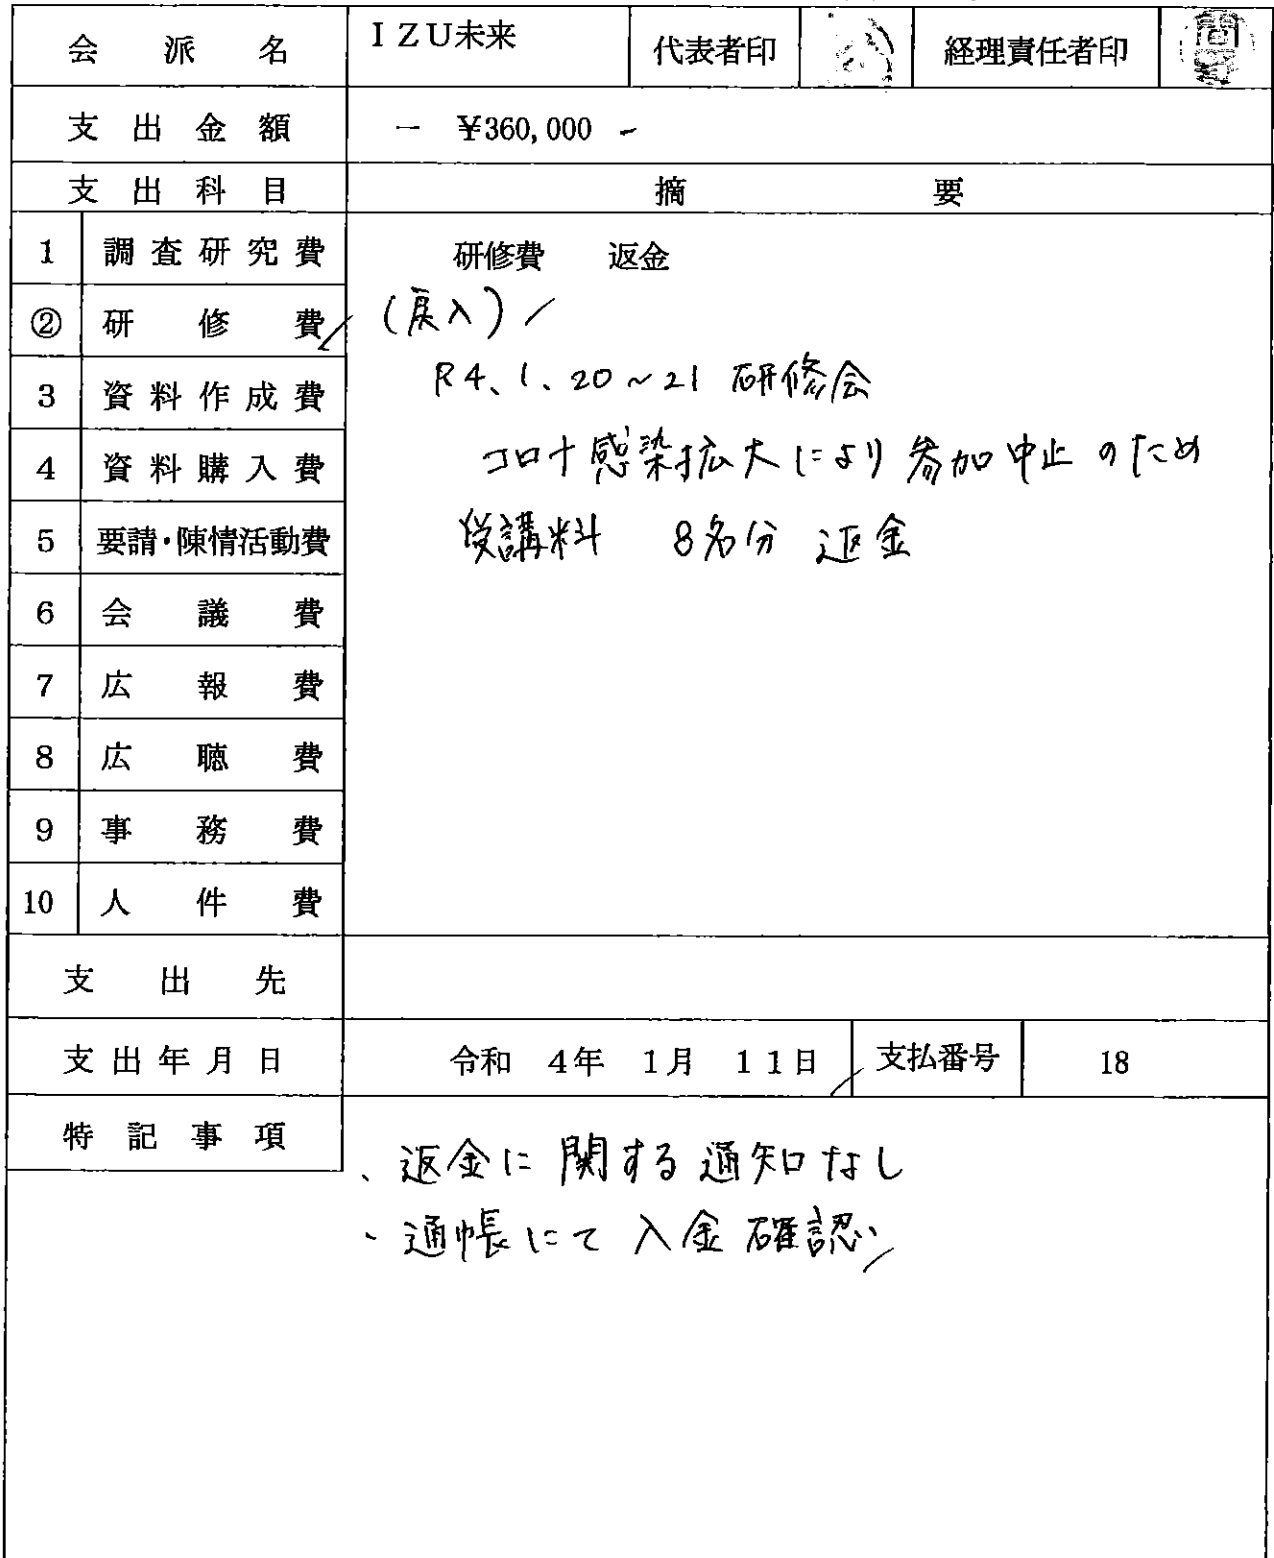 会派名 IZU未来 代表者印 経理責任者印
支出金額 － ¥360,000 -
支出科目 摘要
1 調査研究費 研修費 返金
② 研修費 (戻入)
3 資料作成費 R4、1、20～21 研修会
4 資料購入費 コロナ感染拡大により参加中止のため
5 要請・陳情活動費 受講料 8名分 返金
6 会議費
7 広報費
8 広聴費
9 事務費
10 人件費
支出先
支出年月日 令和 4年 1月 11日 支払番号 18
特記事項
、返金に関する通知なし
・通帳にて入金確認